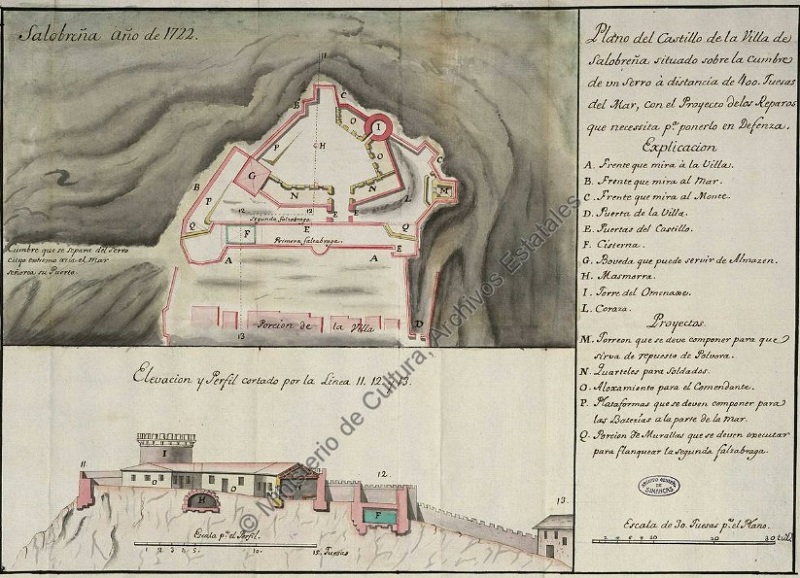 Salobreña año de 1722.
11
C
B
O
I
H
P
O
G
N
N
C
M
L
B
P
12
12
E
E
Segunda falzabraga.
Q
F
E
E
Q
Primera falzabraga.
A
A
Cumbre que se separa del Serro
cuyo estremo acia el Mar
señorea su Puerto
Porcion de la Villa
D
13
Elevacion y Perfil cortado por la Linea 11. 12. y 13.
11
I
O
O
H
12.
F
13.
Escala pª. el Perfil.
1 2 3 4 5. 10. 15. Tuesas
Plano del Castillo de la Villa de
Salobreña situado sobre la Cumbre
de un Serro à distancia de 400. Tuesas
del Mar, con el Proyecto delos Reparos
que necessita pª. ponerlo en Defenza.
Explicacion
A. Frente que mira à la Villa.
B. Frente que mira al Mar.
C. Frente que mira al Monte.
D. Puerta de la Villa.
E. Puertas del Castillo.
F. Cisterna.
G. Boveda que puede servir de Almazen.
H. Masmorra.
I. Torre del Omenaxe.
L. Coraza.
Proyectos.
M. Torreon que se deve componer para que
sirva de repuesto de Polvora.
N. Quarteles para Soldados.
O. Aloxamiento para el Comendante.
P. Plataformas que se deven componer para
las Baterias a la parte de la mar.
Q. Porcion de Murallas que se deven executar
para flanquear la segunda falzabraga.
ARCHIVO GENERAL
DE
SIMANCAS
Escala de 30. Tuesas pª. el Plano.
2 4 6 10 20 30
© Ministerio de Cultura, Archivos Estatales